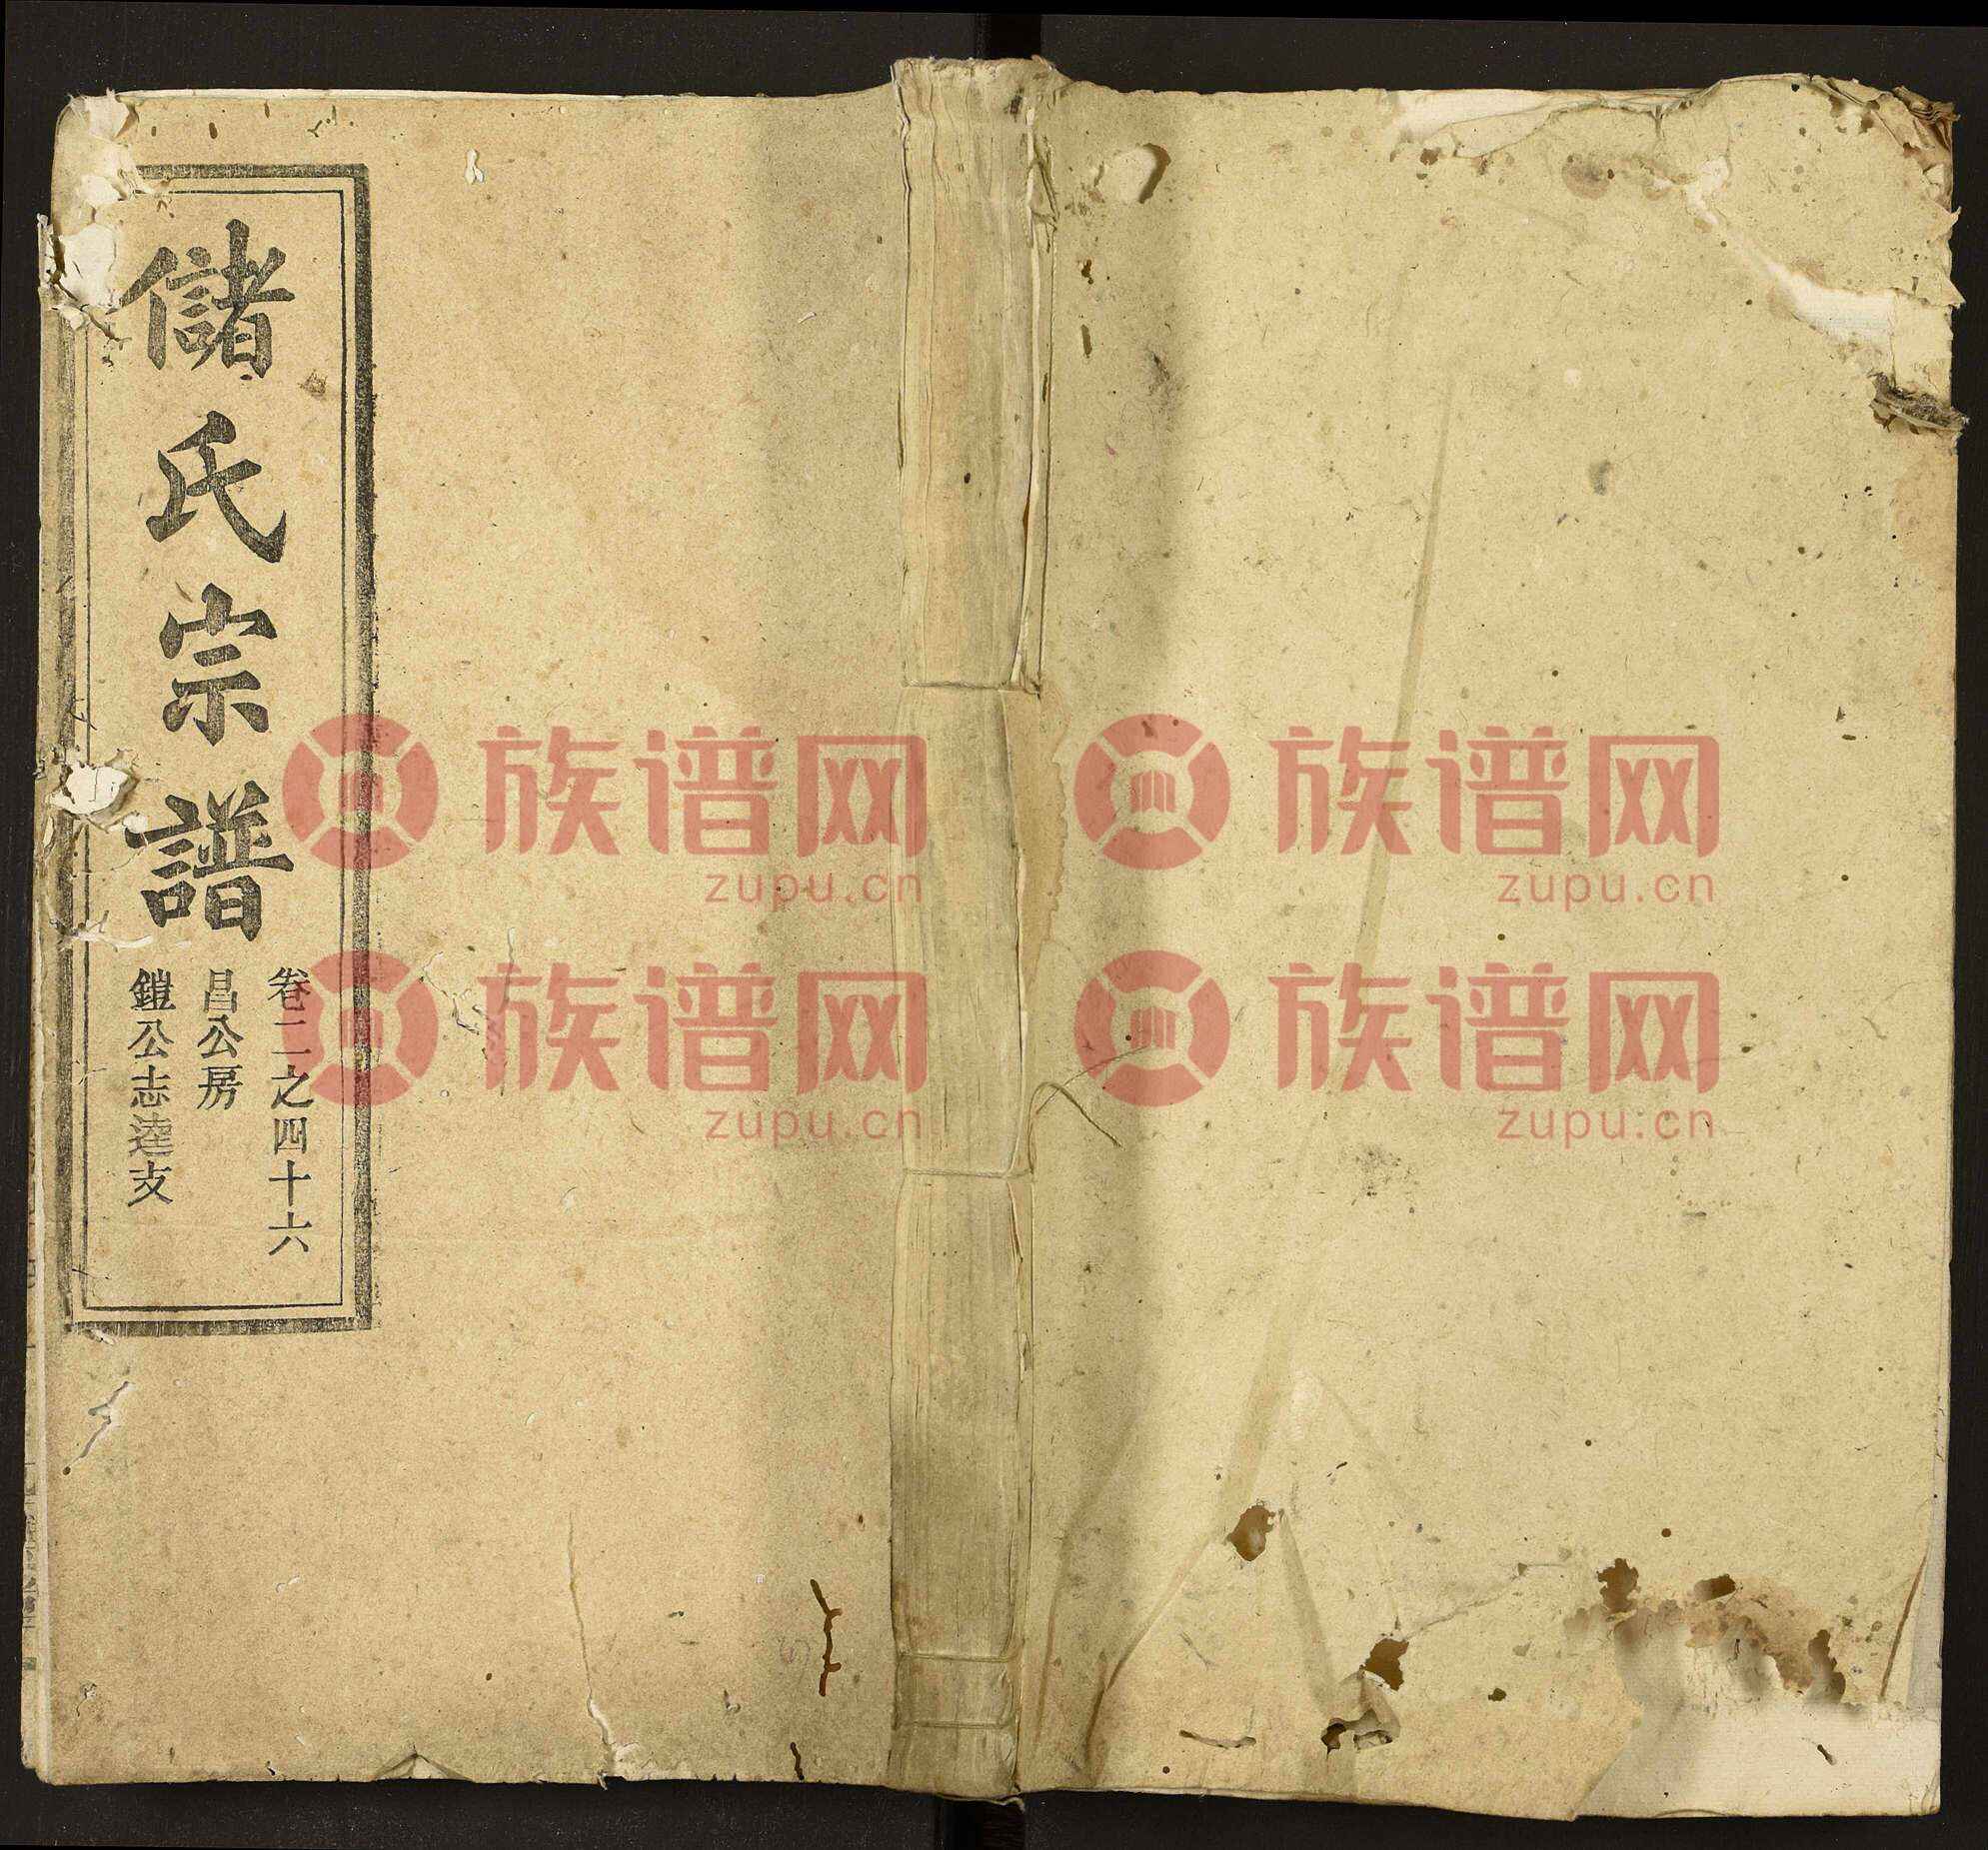 儲氏宗譜
卷二之四十六
昌公房
鎧公志逵支
族谱网
zupu.cn
族谱网
zupu.cn
族谱网
zupu.cn
族谱网
zupu.cn